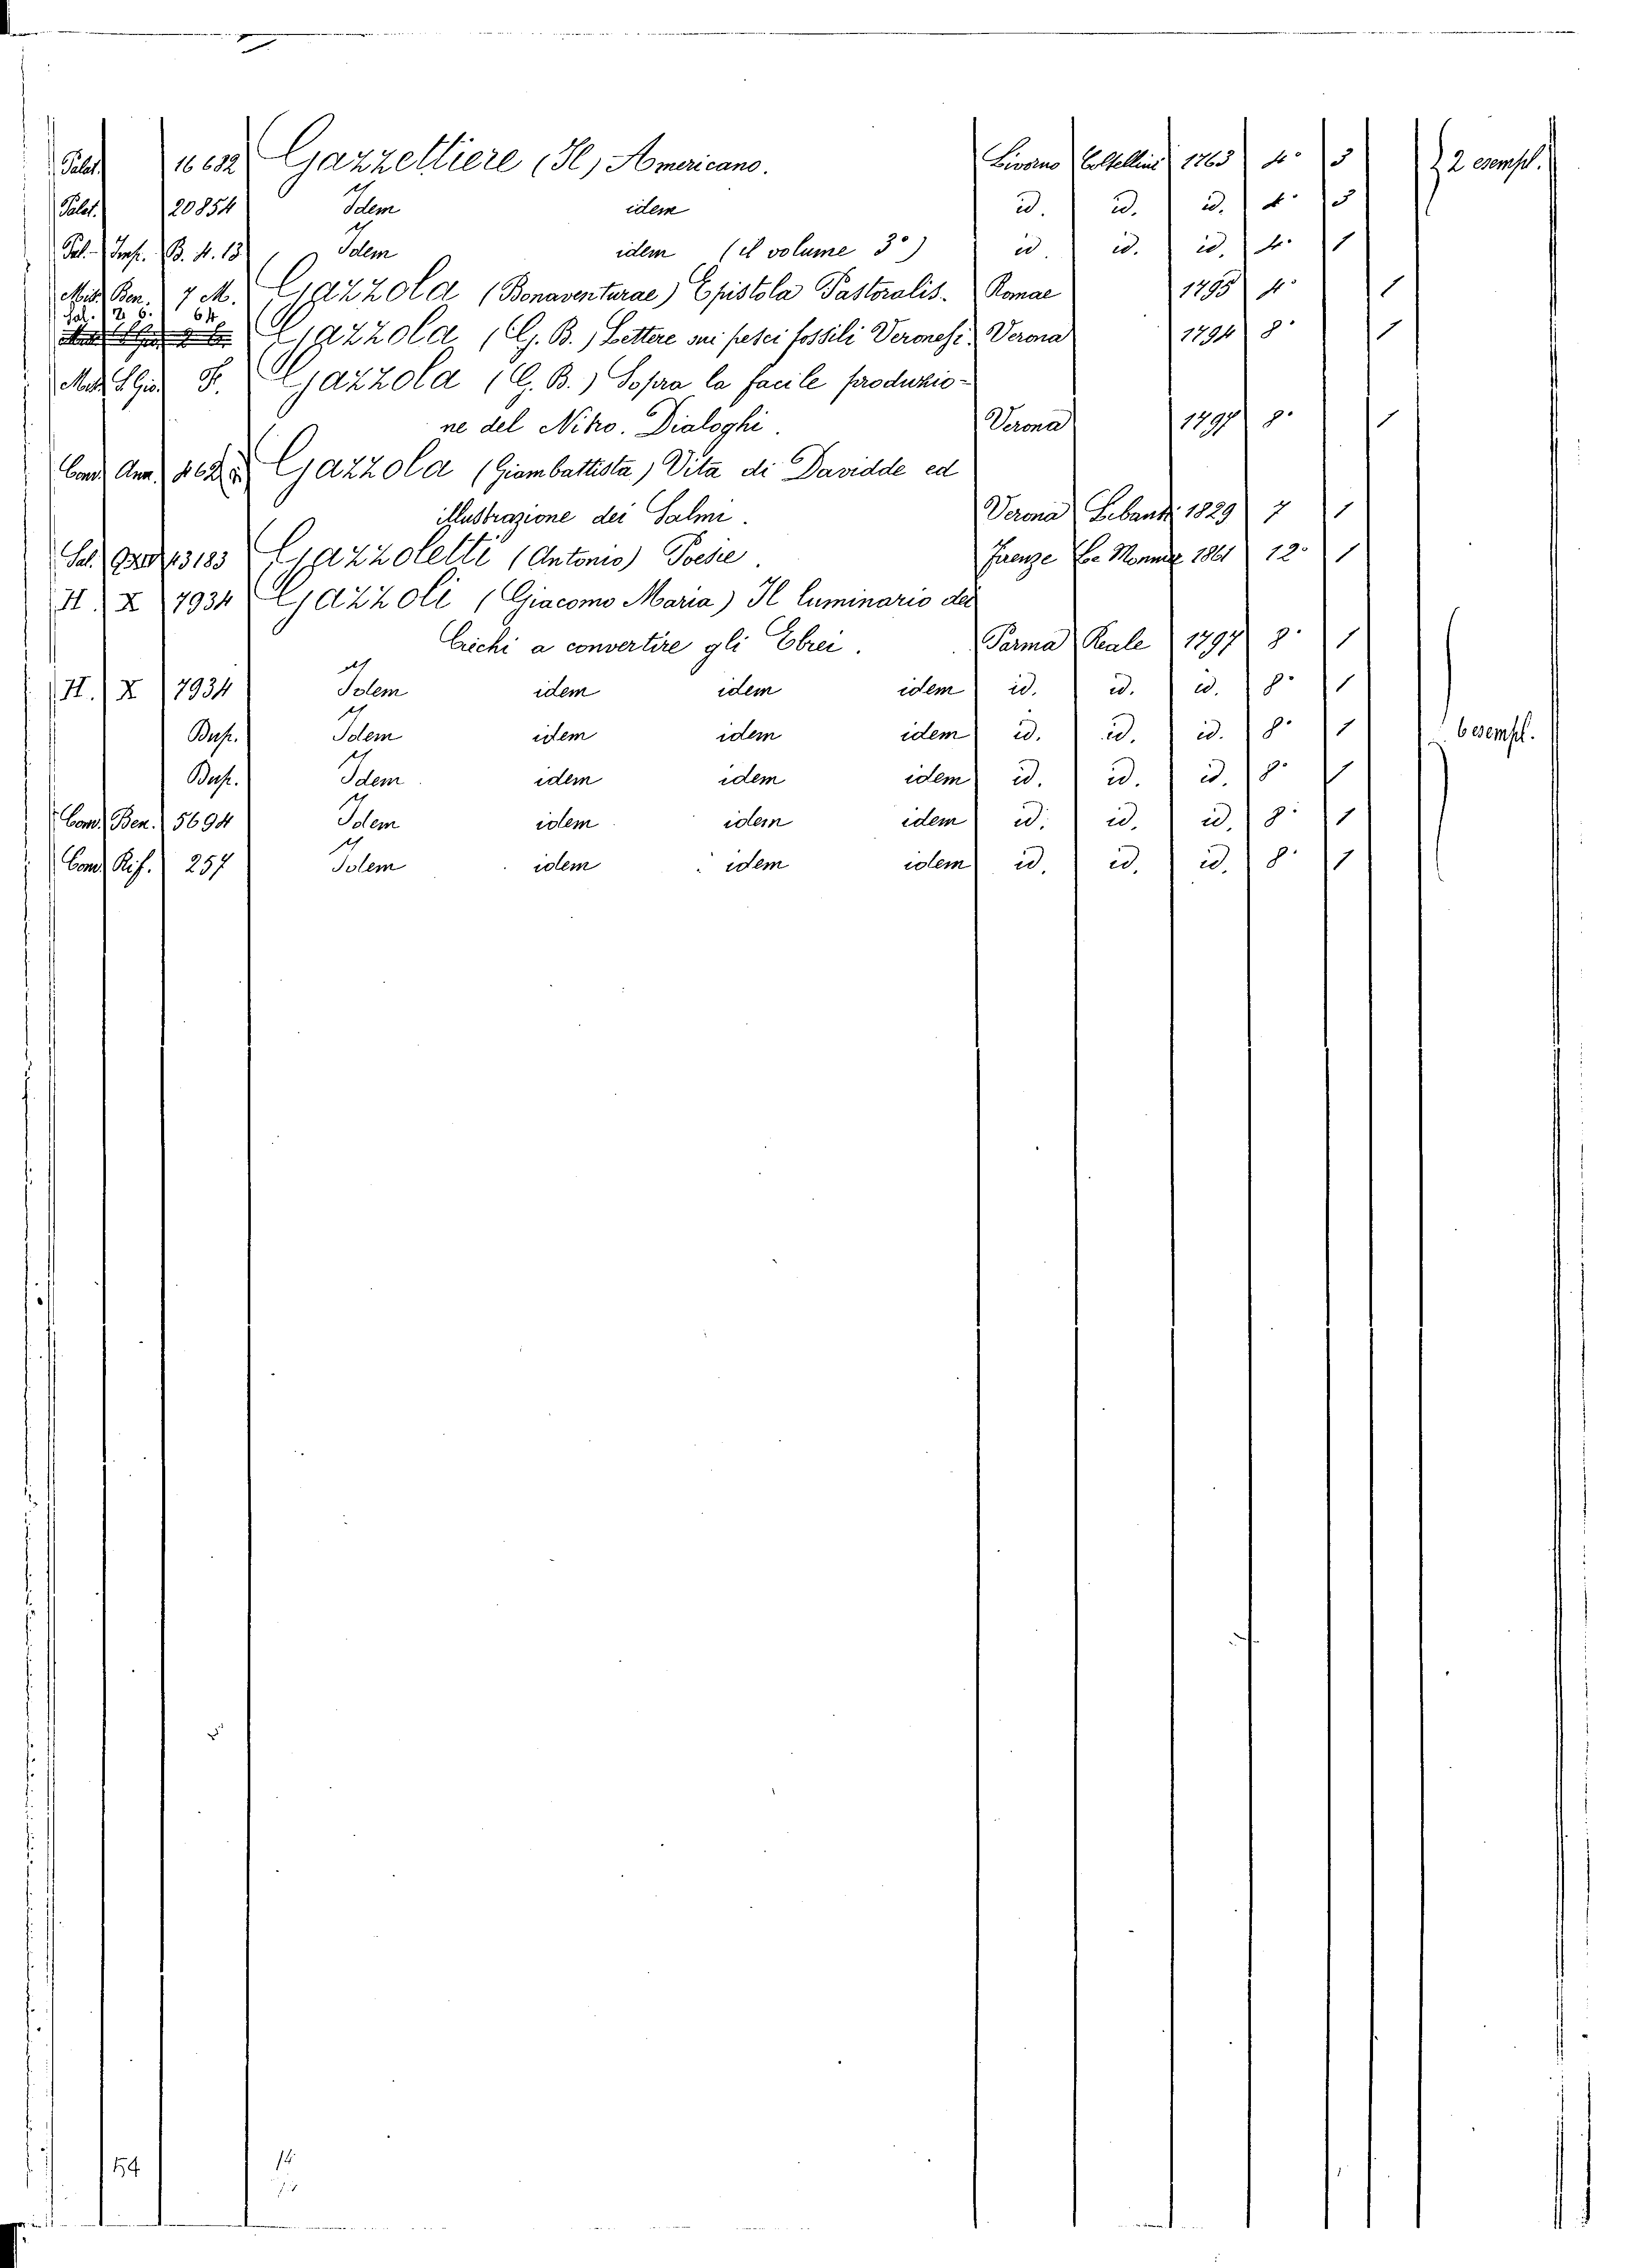 Palat. 16682 Gazzettiere (Il) Americano. Livorno Coltellini 1763 4° 3 2 esempl.
Palat. 20854 Idem idem id. id. id. 4° 3
Pal. Imp. B. 4. 13 Idem idem (il volume 3°) id. id. id. 4° 1
Mis. Ben. 7 M. Gazzola (Bonaventurae) Epistola Pastoralis. Romae 1795 4° 1
Sal. 26. 64 Gazzola (G. B.) Lettere sui pesci fossili Veronesi. Verona 1794 8° 1
S. Gio. F. Gazzola (G. B.) Sopra la facile produzio-
ne del Nitro. Dialoghi. Verona 1797 8° 1
Conv. Ann. Gazzola (Giambattista) Vita di Davidde ed
illustrazione dei Salmi. Verona Libanti 1829 7 1
Sal. 13183 Gazzoletti (Antonio) Poesie. Firenze Le Monnier 1861 12° 1
H. X 7934 Gazzoli (Giacomo Maria) Il luminario dei
Ciechi a convertire gli Ebrei. Parma Reale 1797 8° 1
H. X 7934 Idem idem idem idem id. id. id. 8° 1
Busp. Idem idem idem idem id. id. id. 8° 1 6 esempl.
Busp. Idem idem idem idem id. id. id. 8° 1
Conv. Ben. 5694 Idem idem idem idem id. id. id. 8° 1
Conv. Rif. 257 Idem idem idem idem id. id. id. 8° 1
54 14